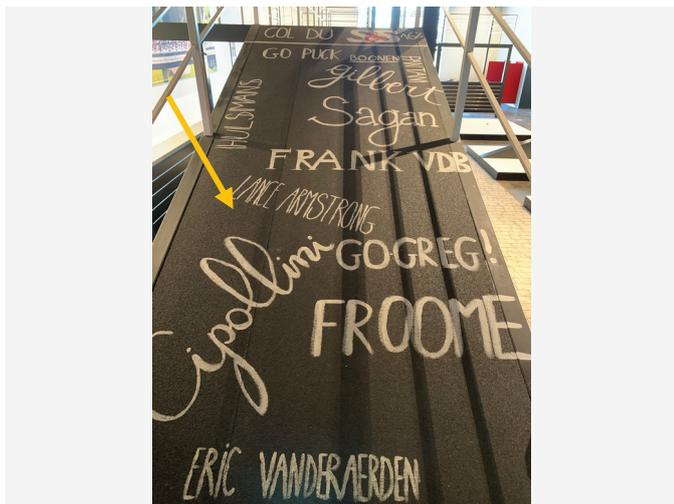 COL DU
GO PUCK BOONEN
gilbert
HULSMANS
Sagan
FRANK VDB
LANCE ARMSTRONG
Cipollini
GO GREG!
FROOME
ERIC VANDERAERDEN